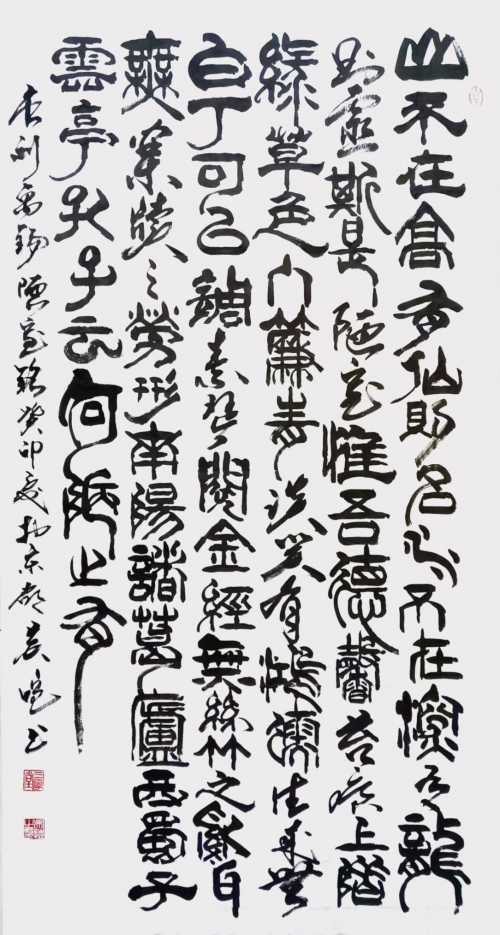 山不在高有仙則名水不在深有龍
則靈斯是陋室惟吾德馨苔痕上階
綠草色入簾青談笑有鴻儒往來無
白丁可以調素琴閱金經無絲竹之亂耳
無案牘之勞形南陽諸葛廬西蜀子
雲亭孔子云何陋之有
劉禹錫陋室銘癸卯夏於京都書